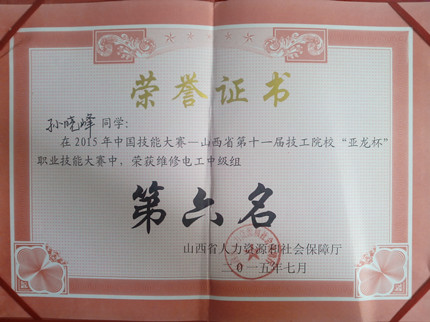 荣誉证书
孙晓峰 同学:
在2015年中国技能大赛—山西省第十一届技工院校“亚龙杯”
职业技能大赛中，荣获维修电工中级组
第六名
山西省人力资源和社会保障厅
二〇一五年七月